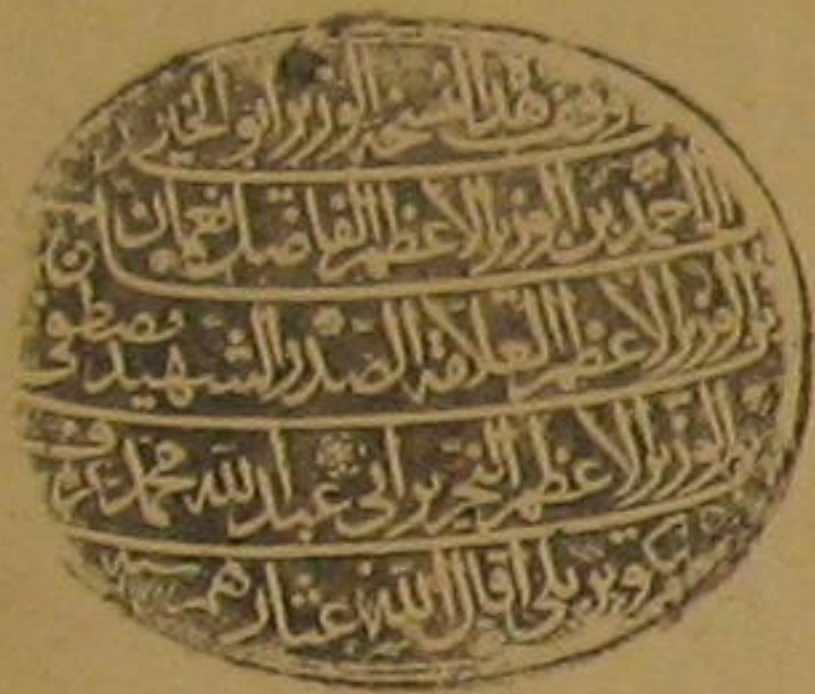 وقف هذا النسخة الوزير ابو الخير
احمد بن الوزير الاعظم الفاضل نعمان
بن الوزير الاعظم العلامة الصدر الشهيد مصطفى
بن الوزير الاعظم النحرير ابي عبد الله محمد عرف
بكوبريلي اقال الله عثارهم